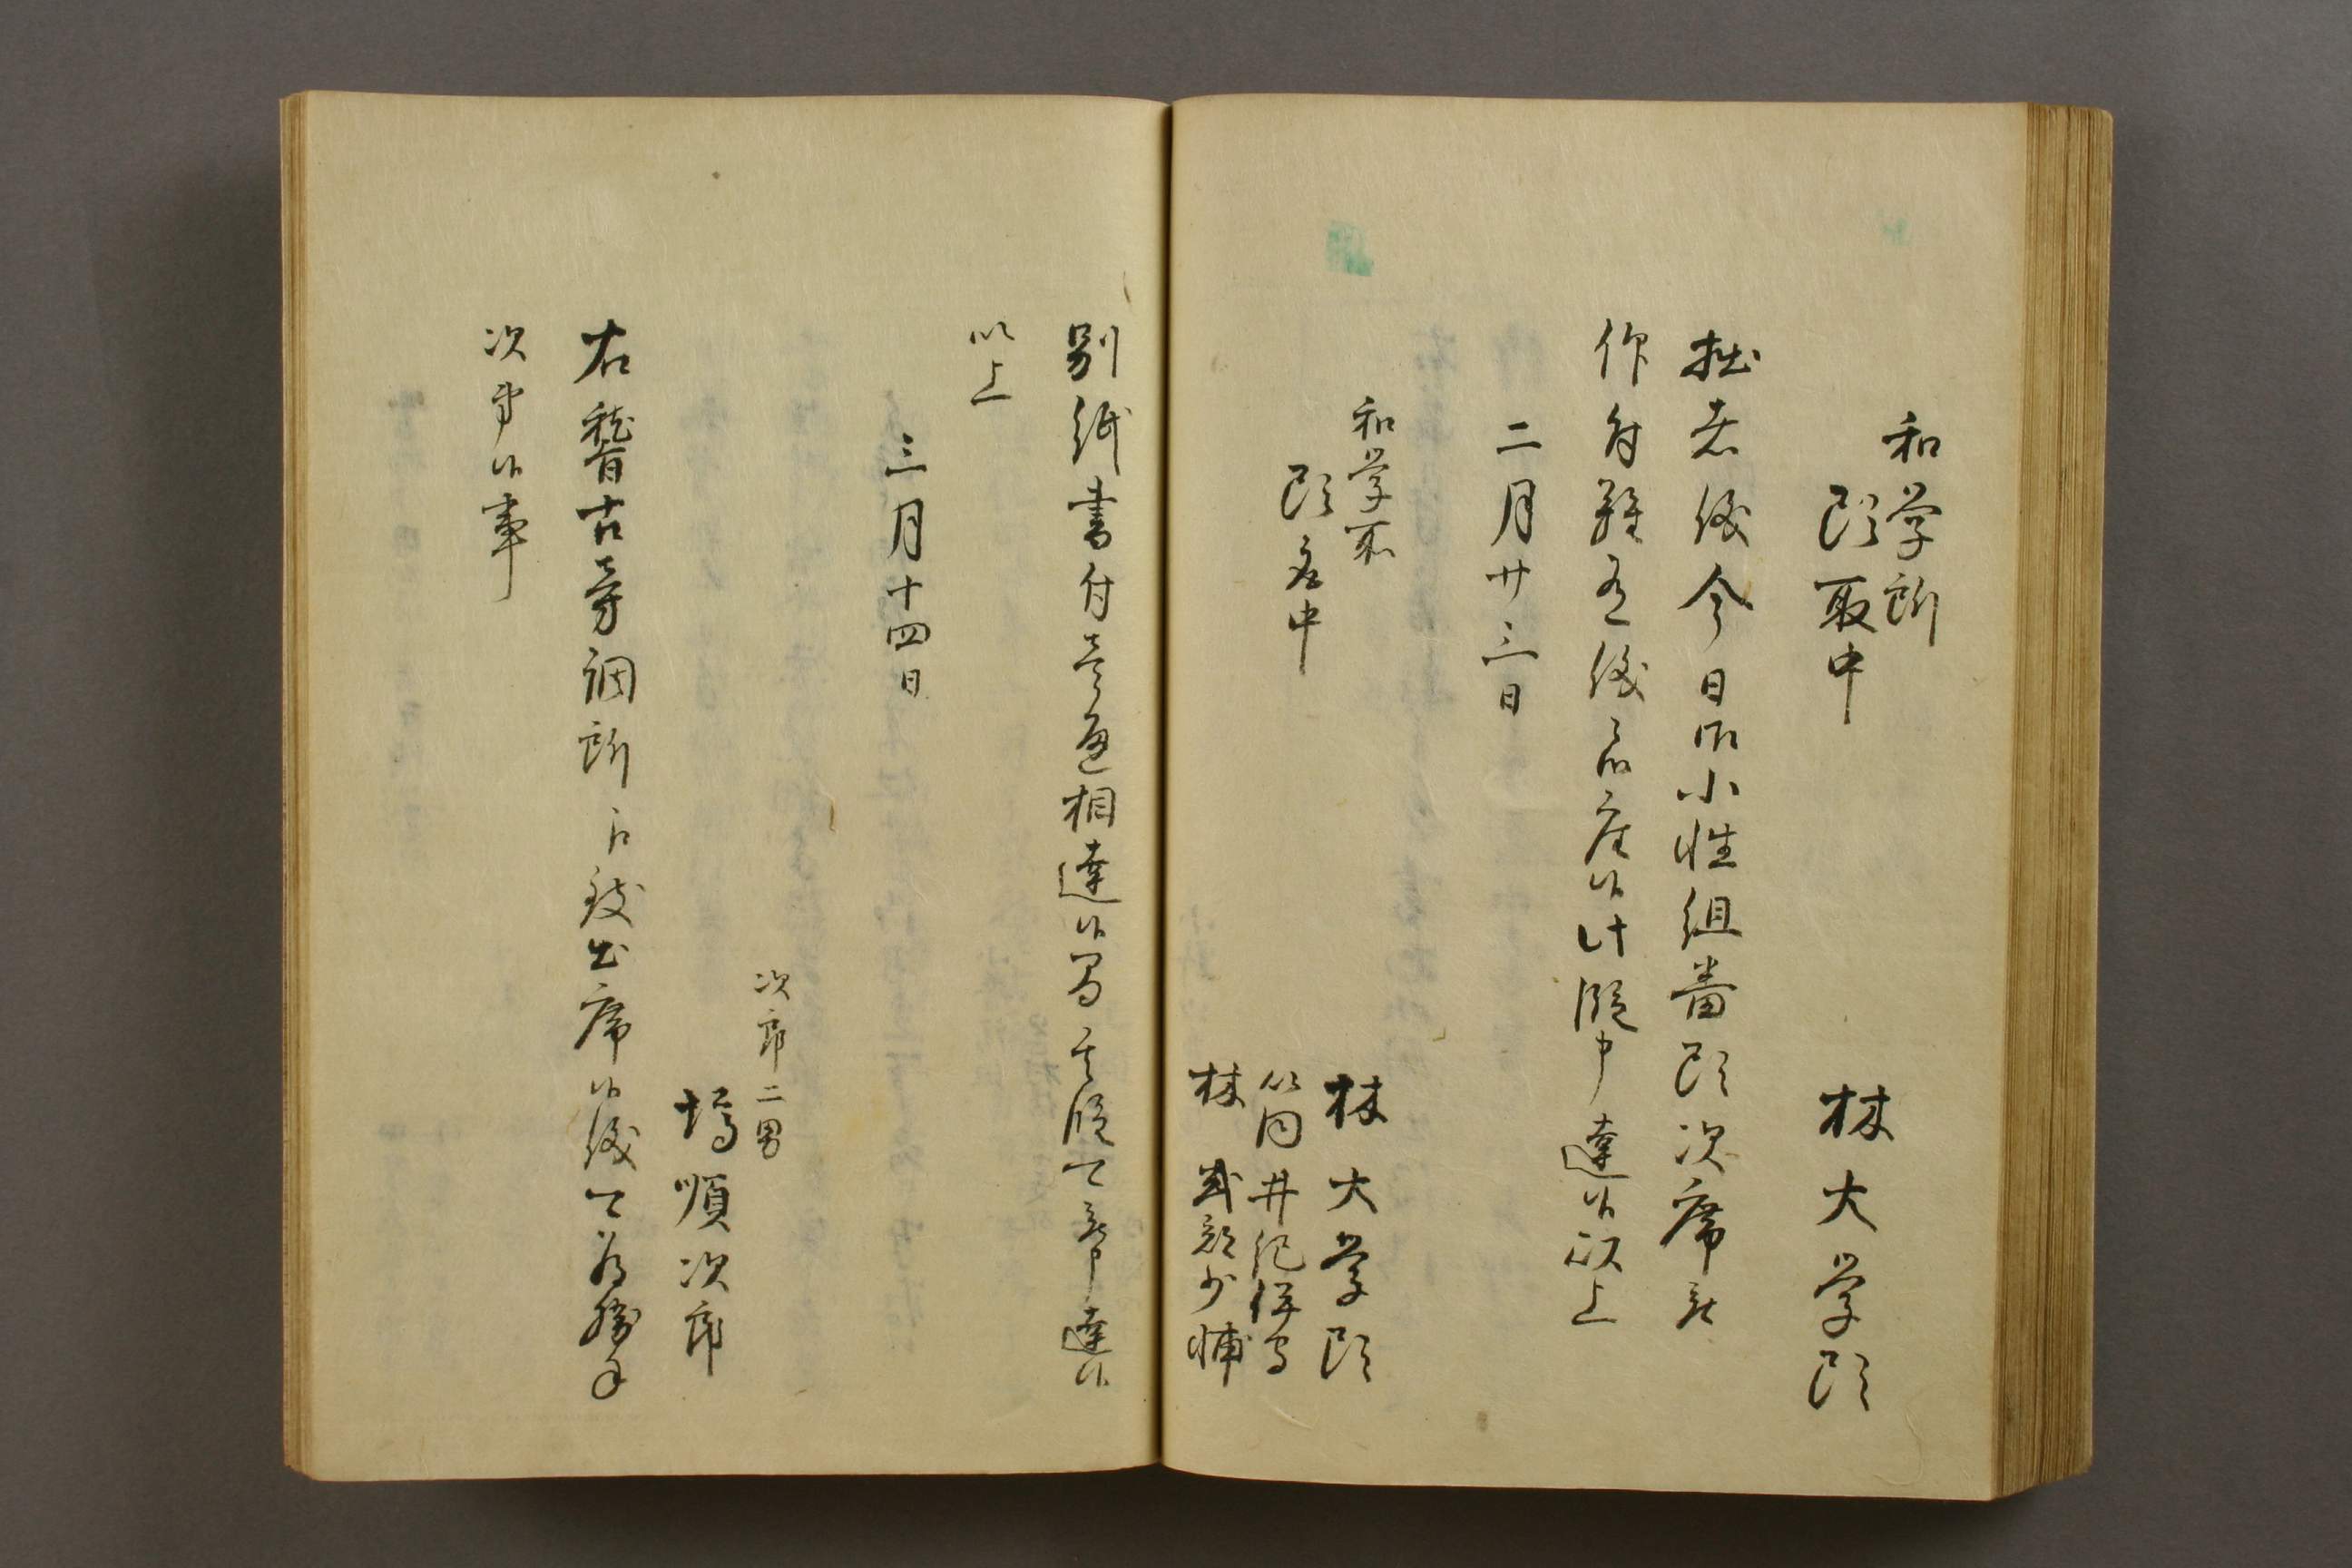 和学所
頭取中
林大学頭
拙者儀今日御小性組番頭次席被
仰付難有仕合奉存候此段申達候以上
二月廿三日
和学所
頭取中
林大学頭
筒井紀伊守
林式部少輔
別紙書付壱通相達候間其段可被申達候
以上
三月十四日
次郎二男
塙順次郎
右稽古旁調所江致出席候儀可為勝手
次第候事